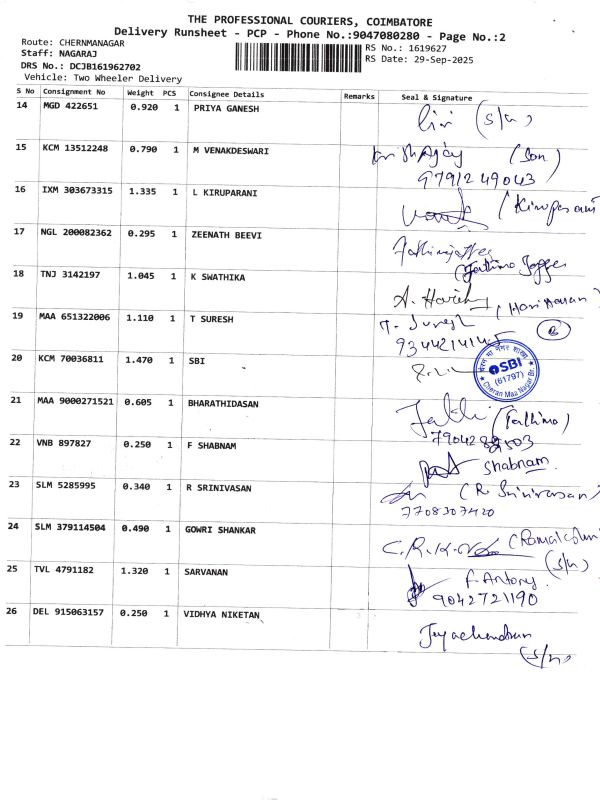 THE PROFESSIONAL COURIERS, COIMBATORE
Delivery Runsheet - PCP - Phone No.:9047080280 - Page No.:2
Route: CHERNMANAGAR
Staff: NAGARAJ
DRS No.: DCJB161962702
Vehicle: Two Wheeler Delivery
RS No.: 1619627
RS Date: 29-Sep-2025
S No Consignment No Weight PCS Consignee Details Remarks Seal & Signature
14 MGD 422651 0.920 1 PRIYA GANESH (S/n)
15 KCM 13512248 0.790 1 M VENAKDESWARI (Son)
9791249043
16 IXM 303673315 1.335 1 L KIRUPARANI (Kiruparani
17 NGL 200082362 0.295 1 ZEENATH BEEVI
(Fathima
18 TNJ 3142197 1.045 1 K SWATHIKA A. Harih (Hariharan)
19 MAA 651322006 1.110 1 T SURESH T. Suresh
9344214145
20 KCM 70036811 1.470 1 SBI
SBI
(61797)
Cheran Maa Nagar Br.
21 MAA 9000271521 0.605 1 BHARATHIDASAN (Fathima)
22 VNB 897827 0.250 1 F SHABNAM Shabnam
23 SLM 5285995 0.340 1 R SRINIVASAN (R Srinivasan)
7708307420
24 SLM 379114504 0.490 1 GOWRI SHANKAR C.R.K.
(S/n)
25 TVL 4791182 1.320 1 SARVANAN F. Antony
9042721190
26 DEL 915063157 0.250 1 VIDHYA NIKETAN Jeyachandran
(S/n)